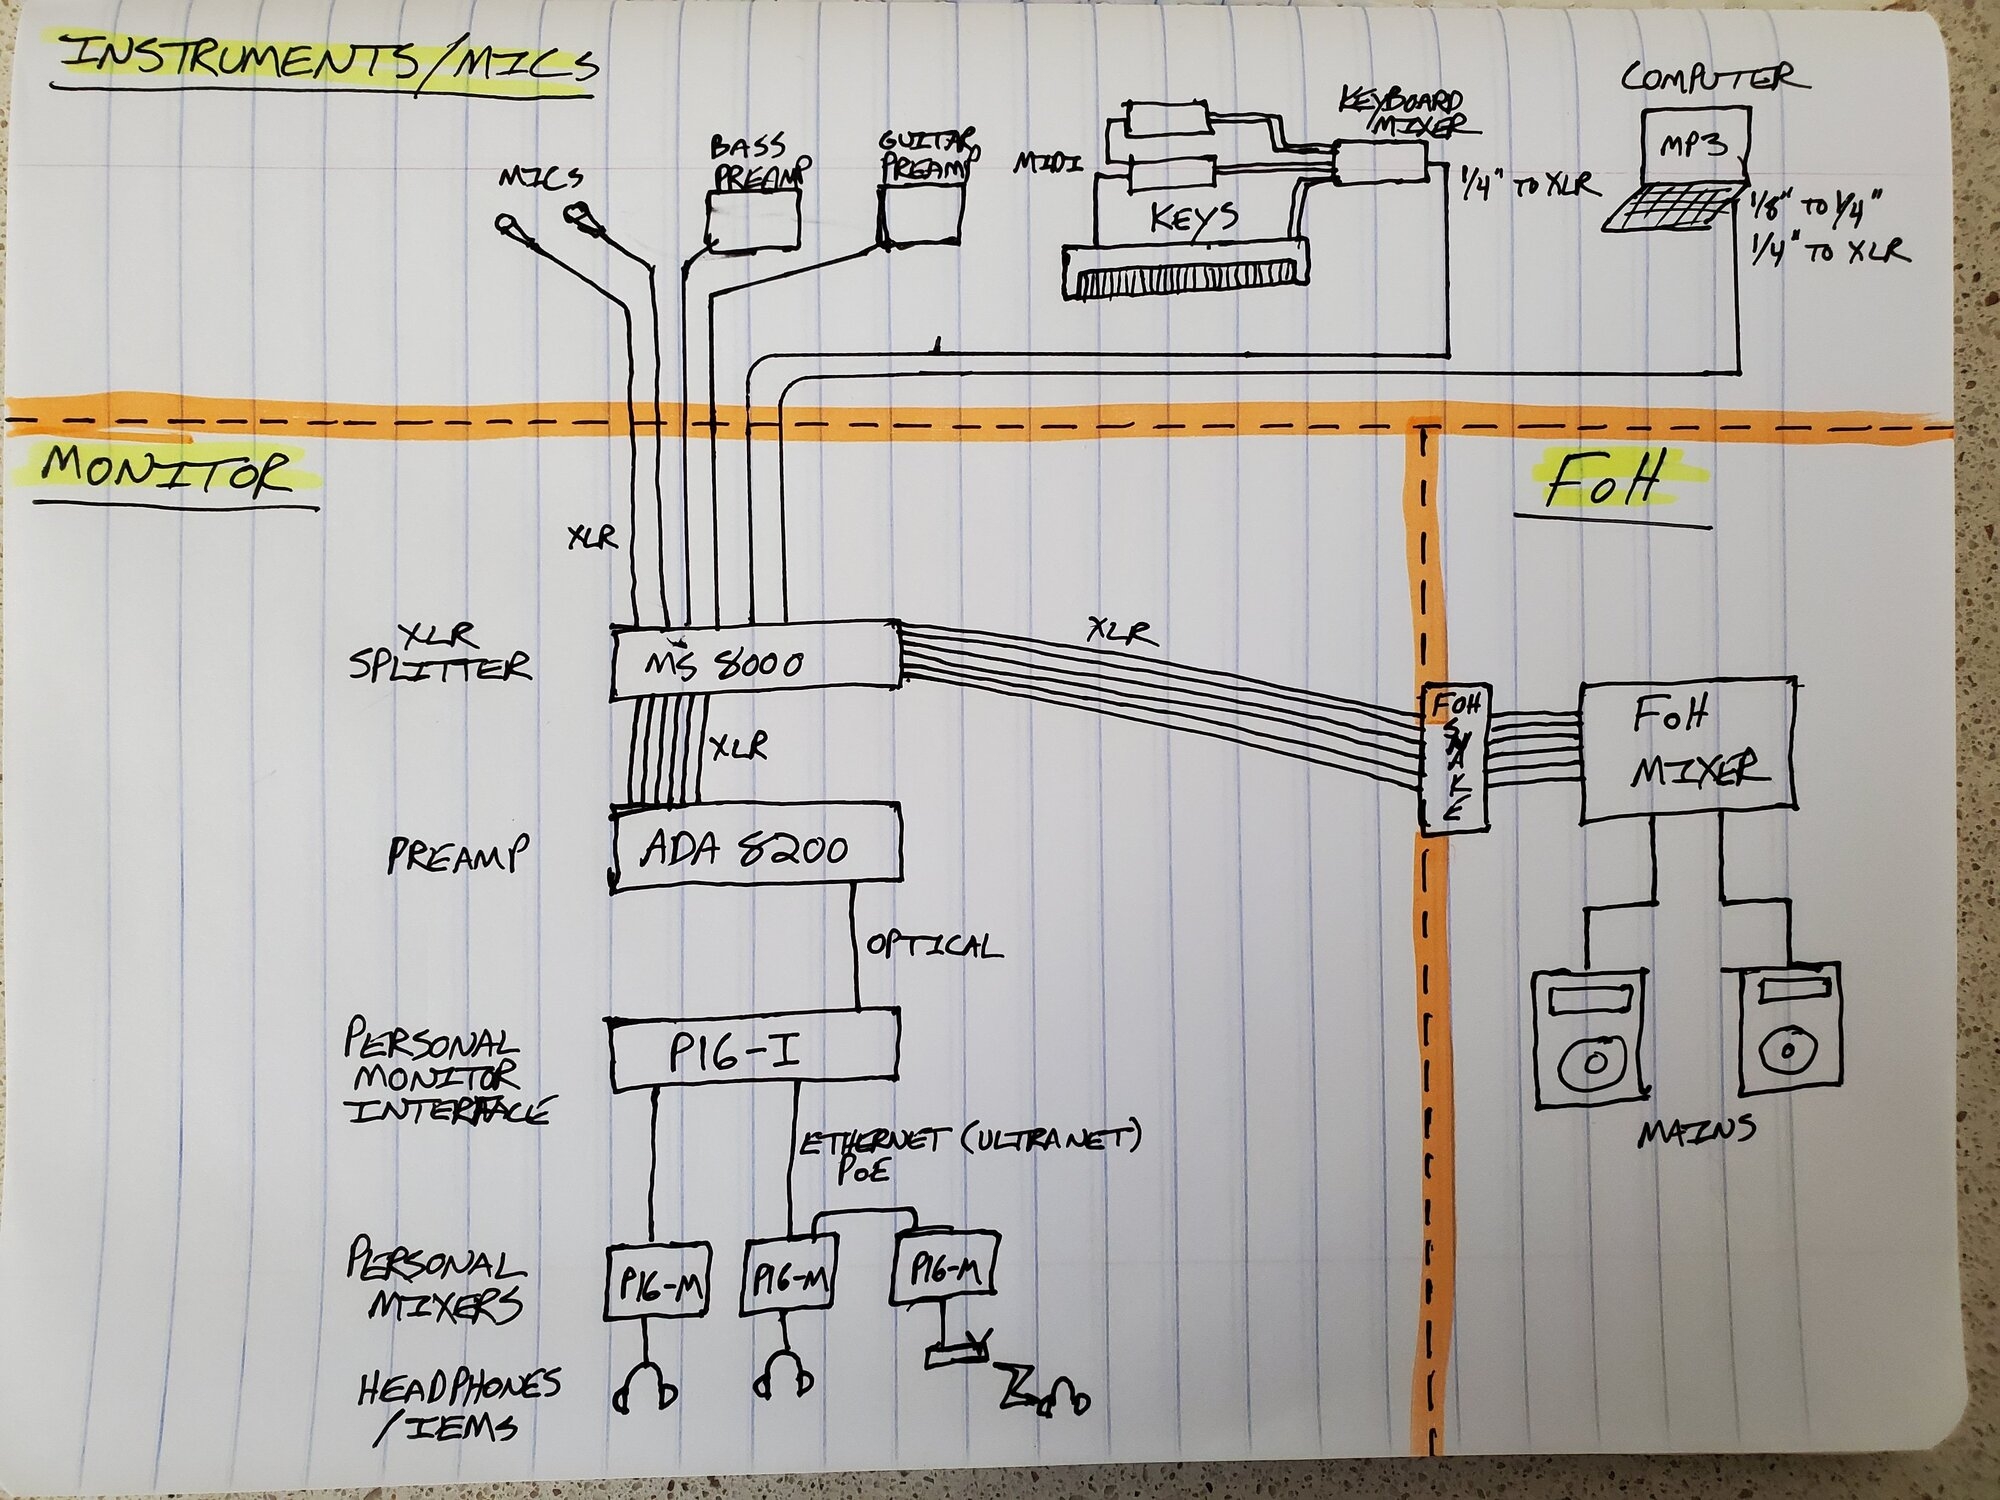 INSTRUMENTS/MICS
MICS
BASS
PREAMP
GUITAR
PREAMP
MIDI
KEYS
KEYBOARD
MIXER
1/4" TO XLR
COMPUTER
MP3
1/8" TO 1/4"
1/4" TO XLR
MONITOR
FOH
XLR
XLR
SPLITTER
MS 8000
XLR
XLR
FOH
SNAKE
FOH
MIXER
PREAMP
ADA 8200
OPTICAL
MAINS
PERSONAL
MONITOR
INTERFACE
P16-I
ETHERNET (ULTRANET)
POE
PERSONAL
MIXERS
P16-M
P16-M
P16-M
HEADPHONES
/IEMS